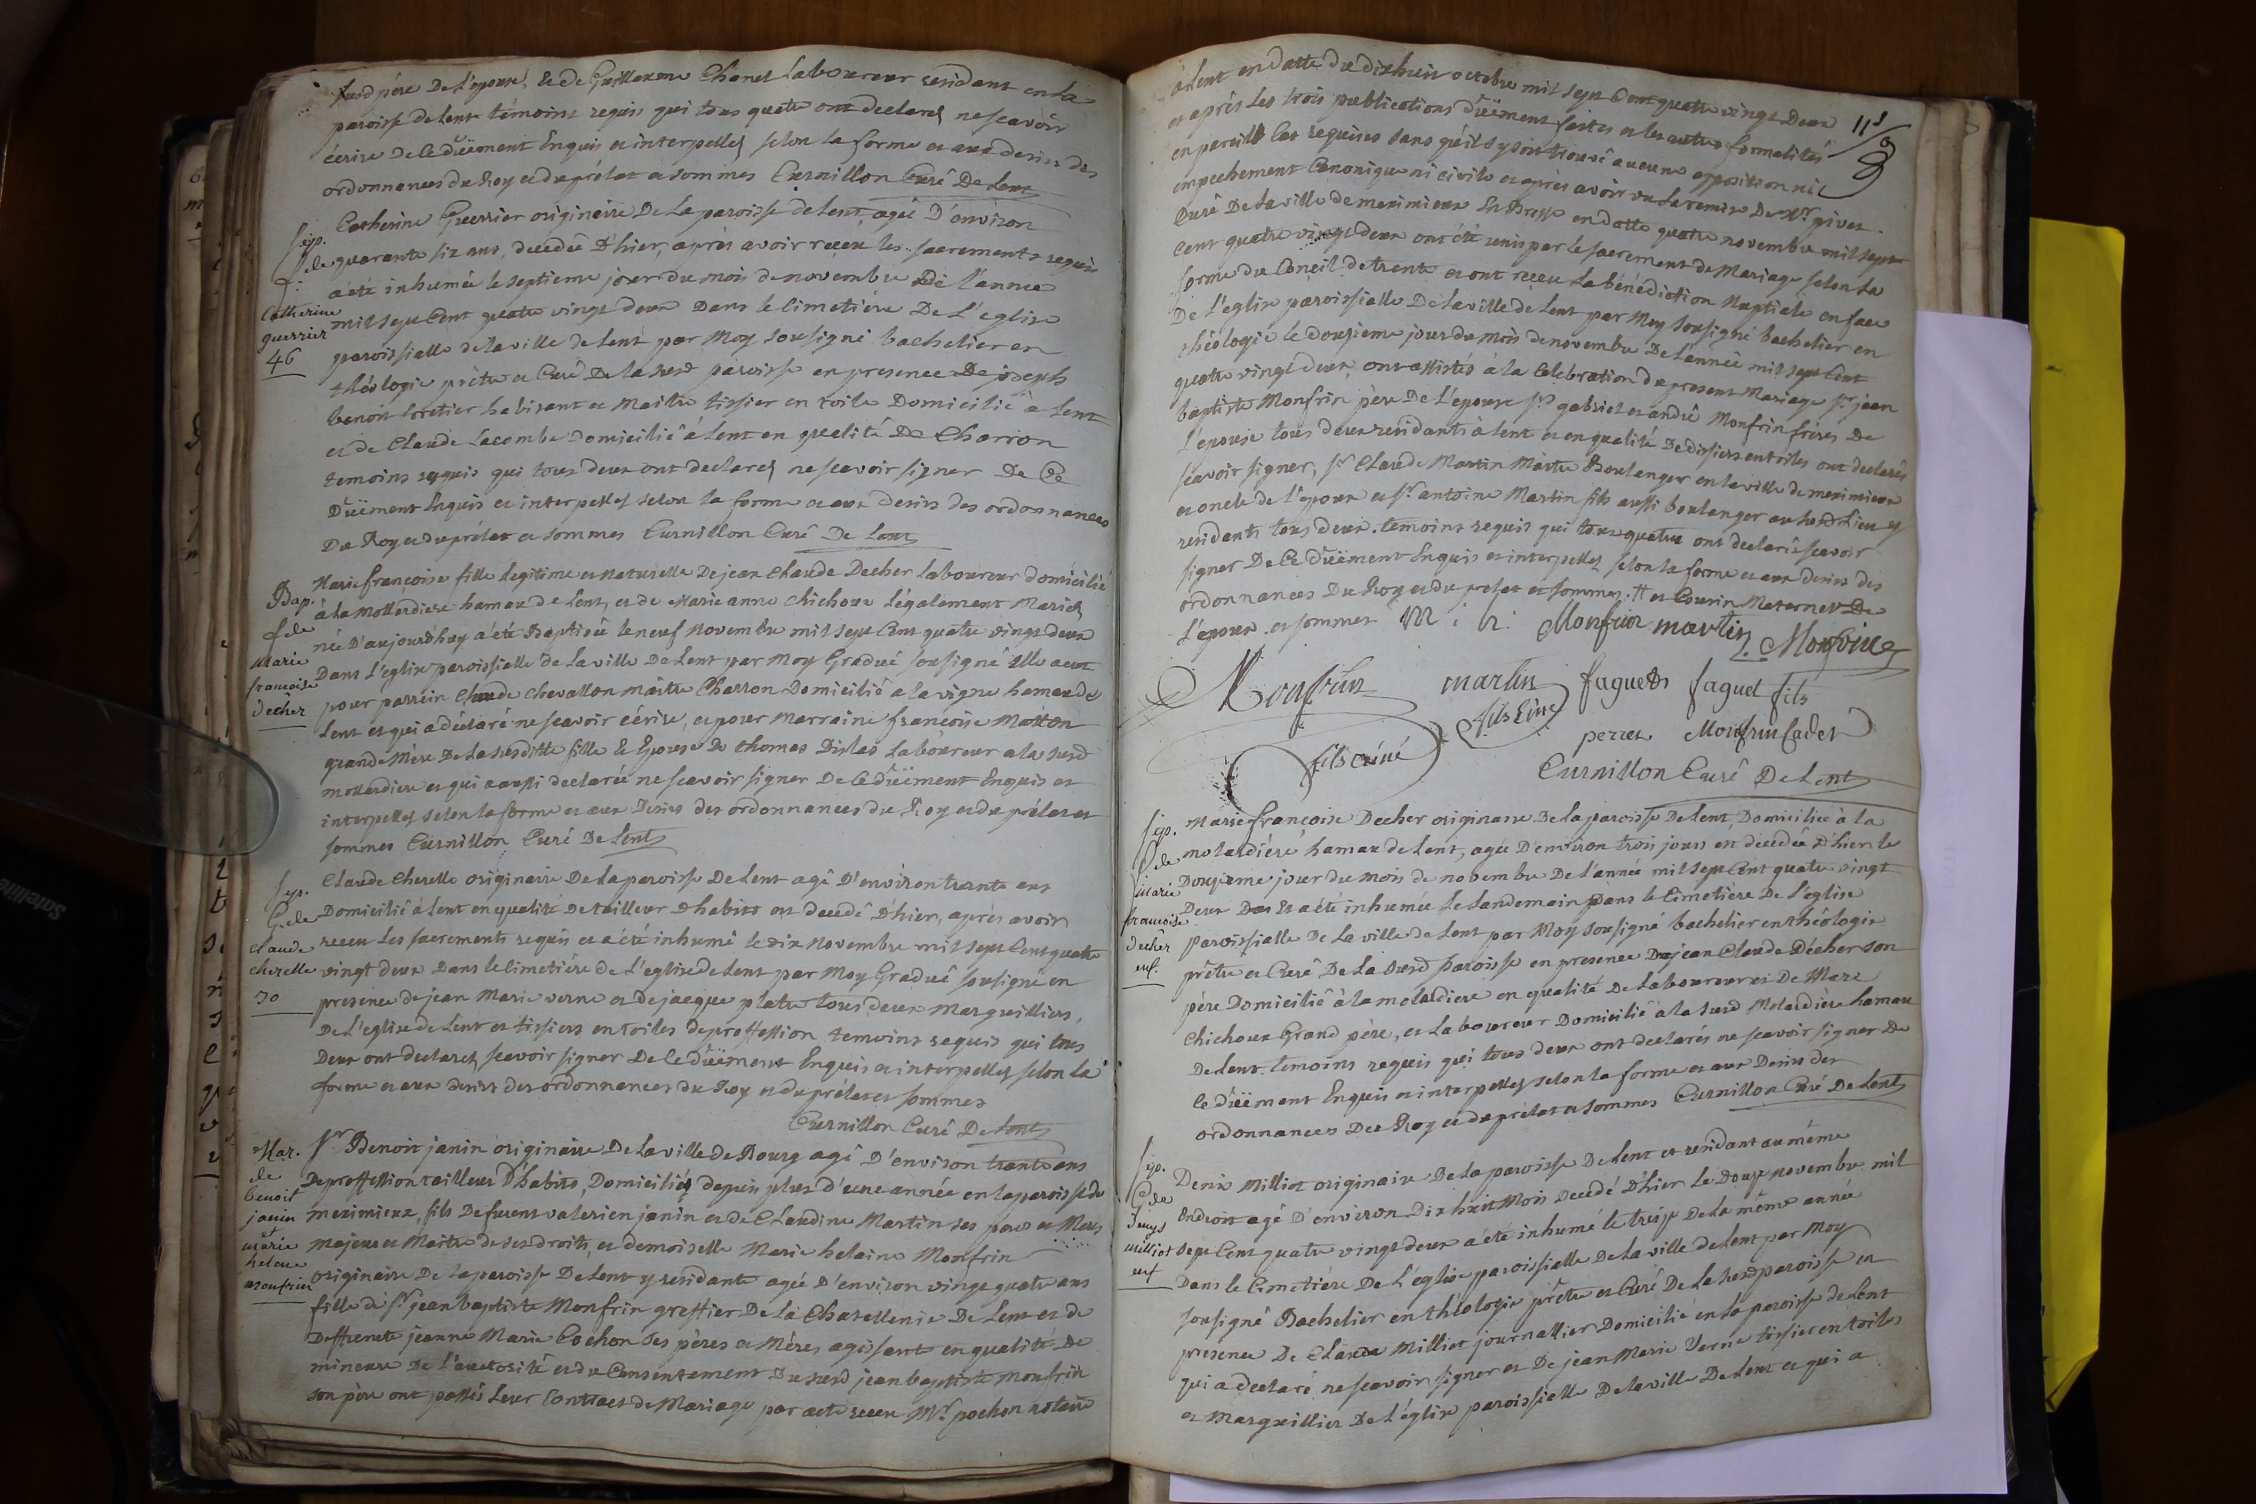 susd père De L'epouse, & de Guillaume Chanel Laboureur residant en La
paroisse de Lent témoins requis qui tous quatre ont declarés ne scavoir
écrire De Ce Düëment Enquis et interpellés selon la forme et aux desirs des
ordonnances du Roy et du prélat et sommes Curnillon Curé De Lent
Sep.
de
Catherine
guerrier
46
Catherine Guerrier originaire De La paroisse de Lent, agée D'environ
quarante six ans, decedée D'hier, après avoir receu les sacrements requis
a été inhumée le septieme jour du mois de novembre De L'année
mil sept Cent quatre vingt deux Dans le Cimetiére De L'eglise
paroissialle de la ville de Lent par Moy sousigné bachelier en
théologie prêtre et Curé De la susd paroisse en presence De joseph
benoit habitant et Maitre tissier en toile Domicilié à Lent
et de Claude Lacombe Domicilié à Lent en qualité De Charron
temoins requis qui tous deux ont declarés ne scavoir signer De Ce
Düëment Enquis et interpellés selon la forme et aux desirs des ordonnances
Du Roy et du prélat et sommes Curnillon Curé De Lent
Bap.
de
Marie
françoise
decher
Marie françoise fille Legitime et naturelle De jean Claude Decher laboureur domicilié
à la Mollardiere hamau de Lent, et de Marie anne Chichoux Légalement Mariés
née D'aujourd'huy a été Baptisée le neuf Novembre mil sept Cent quatre vingt deux
Dans L'église paroissielle de La ville De Lent par Moy Gradué sousigné Elle a eut
pour parrein Claude Chevallon maitre Charron Domicilié a la vigne hamau de
Lent et qui a déclaré ne scavoir écrire, et pour Marraine françoise Maitton
grande Mère De La susditte fille & Epouse De thomas Laboureur a la susd
mollardiere et qui a aussi declarée ne scavoir signer De Ce düëment Enquis et
interpellés selon la forme et aux Desirs des ordonnances du Roy et du prélat et
sommes Curnillon Curé De Lent
Sep.
de
Claude
cherelle
30
Claude Cherelle originaire De La paroisse De Lent agé D'environ trante ans
Domicilié à Lent en qualité De tailleur D'habits est decedé D'hier, après avoir
receu Les sacrements requis et a été inhumé le dix Novembre mil sept Cent quatre
vingt deux Dans le Cimetiére de L'eglise de Lent par Moy Gradué sousigné en
presence de jean Marie verne et de jacque platre tous deux Marguilliers
De L'eglise de Lent et tissiers en toiles de proffession temoins requis qui tous
Deux ont declarés scavoir signer De Ce düëment Enquis et interpellés selon la
forme et aux desirs des ordonnances du Roy et du prélat et sommes
Curnillon Curé De Lent
Mar.
de
benoit
janin
et
marie
helene
monfrin
Sr Benoit janin originaire De La ville de Bourg agé D'environ trante ans
De proffession tailleur D'habits, Domicilié depuis plus d'une année en la paroisse de
meximieux, fils De furent valerien janin et de Claudine Martin ses pere et Meres
majeur et Maitre de ses droits, et demoiselle Marie helaine Monfrin
originaire De La paroisse De Lent y residante agée D'environ vingt quatre ans
fille de Sr jean baptiste Monfrin greffier De La Chatellenie De Lent et de
Deffunte jeanne Marie Cochon ses pères et Mères agissant en qualité De
mineure De L'auctorité et du Consentement Du susd jean baptiste Monfrin
son père ont passés Leur Contract de Mariage par acte receu Mr pochon notaire
à Lent en datte du dixhuit octobre mil sept Cent quatre vingt Deux
118
et après Les trois publications Düëment faites et les autres formalités
en pareils Cas requises sans qu'il s'y soit trouvé aucune opposition ni
empechement Canonique ni civile et après avoir vu La remise De Mr
Curé De La ville de meximieux En Bresse en datte quatre novembre mil sept
Cent quatre vingt deux ont été unis par le sacrement de Mariage selon La
forme du Conçil de trente et ont receu La bénédiction Nuptiale en face
De L'église paroissialle De La ville de Lent par Moy sousigné bachelier en
théologie le douzieme jour du mois de novembre De L'année mil sept Cent
quatre vingt deux, ont assistés à la Celebration du present Mariage Sr jean
baptiste Monfrin père De L'epouse Srs gabriel et andré Monfrin frères De
L'epouse tous deux residants à Lent et en qualité De tissiers en toiles ont declarés
scavoir signer, Sr Claude Martin Maitre Boulanger en la ville de meximieux
et oncle de l'epoux et Sr antoine Martin fils aussi boulanger au susd Lieu y
residants tous deux. temoins requis qui tous quatre ont declarés scavoir
signer De Ce düëment Enquis et interpellés selon la forme et aux desirs des
ordonnances Du Roy et du prelat et sommes. # et Cousin Maternel De
L'epoux et sommes M : h : Monfrin martin L. Monfrin
Monfrin martin faguet faguet fils
fils ainé
perret Monfrin cadet
fils ainé
Curnillon Curé De Lent
Sep.
de
marie
francoise
decher
enf.
Marie françoise Decher originaire De La paroisse De Lent, Domiciliée à la
molardiéré hamau de Lent, agée D'environ trois jours est decedée D'hier le
Douzieme jour du mois de novembre De L'année mil sept Cent quatre vingt
Deux Et a été inhumée Le Landemain Dans le Cimetière De L'église
paroissialle De La ville de Lent par Moy sousigné bachelier en théologie
prêtre et Curé De La susd paroisse en presence De jean Claude Décher son
père Domicilié à la molardiere en qualité De Laboureur et De Marc
Chichoux Grand père, et Laboureur Domicilié à la susd Molardiere hamau
De Lent. temoins requis qui tous deux ont declarés ne scavoir signer De
Ce düëment Enquis et interpellés selon la forme et aux Desirs des
ordonnances Du Roy et du prélat et sommes Curnillon Curé De Lent
Sep.
de
denys
milliot
enf
Denis Milliot originaire De La paroisse De Lent et residant au même
Endroit agé D'environ Dix huit Mois decedé D'hier Le Douze novembre mil
sept Cent quatre vingt deux a été inhumé le treize De La même année
Dans le Cimetiére De L'église paroissialle De La ville de Lent par Moy
sousigné Bachelier en théologie prêtre et Curé De La susd paroisse en
presence De Claude Milliot journallier Domicilié en La paroisse de Lent
qui a declaré ne scavoir signer et De jean Marie Verne tissier en toiles
et Marguillier De L'église paroissialle De la ville De Lent et qui a